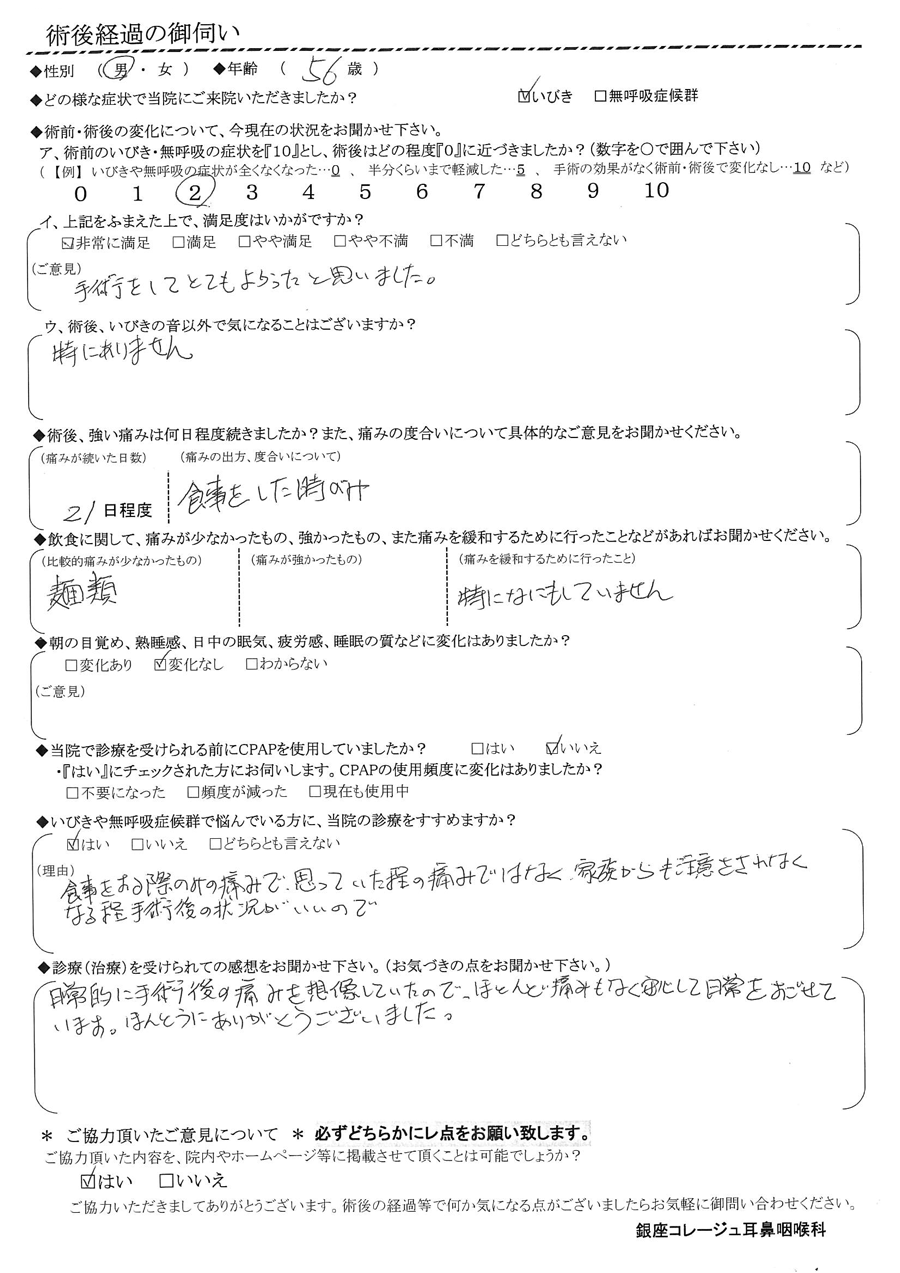 術後経過の御伺い
◆性別 （ 男 ・ 女 ） ◆年齢 （ 56 歳 ）
◆どの様な症状で当院にご来院いただきましたか？ ☑いびき □無呼吸症候群
◆術前・術後の変化について、今現在の状況をお聞かせ下さい。
ア、術前のいびき・無呼吸の症状を『10』とし、術後はどの程度『0』に近づきましたか？（数字を○で囲んで下さい）
（【例】 いびきや無呼吸の症状が全くなくなった…0 、 半分くらいまで軽減した…5 、 手術の効果がなく術前・術後で変化なし…10 など）
0 1 2 3 4 5 6 7 8 9 10
イ、上記をふまえた上で、満足度はいかがですか？
☑非常に満足 □満足 □やや満足 □やや不満 □不満 □どちらとも言えない
（ご意見）
手術をしてとてもよかったと思いました。
ウ、術後、いびきの音以外で気になることはございますか？
特にありません
◆術後、強い痛みは何日程度続きましたか？また、痛みの度合いについて具体的なご意見をお聞かせください。
（痛みが続いた日数） （痛みの出方、度合いについて）
21日程度 食事をした時のみ
◆飲食に関して、痛みが少なかったもの、強かったもの、また痛みを緩和するために行ったことなどがあればお聞かせください。
（比較的痛みが少なかったもの） （痛みが強かったもの） （痛みを緩和するために行ったこと）
麺類 特になにもしていません
◆朝の目覚め、熟睡感、日中の眠気、疲労感、睡眠の質などに変化はありましたか？
□変化あり ☑変化なし □わからない
（ご意見）
◆当院で診療を受けられる前にCPAPを使用していましたか？ □はい ☑いいえ
・『はい』にチェックされた方にお伺いします。CPAPの使用頻度に変化はありましたか？
□不要になった □頻度が減った □現在も使用中
◆いびきや無呼吸症候群で悩んでいる方に、当院の診療をすすめますか？
☑はい □いいえ □どちらとも言えない
（理由）
食事をする際のみの痛みで、思っていた程の痛みではなく、家族からも注意をされなく
なる程手術後の状況がいいので
◆診療（治療）を受けられての感想をお聞かせ下さい。（お気づきの点をお聞かせ下さい。）
日常的に手術後の痛みを想像していたので、ほとんど痛みもなく安心して日常をすごせて
います。ほんとうにありがとうございました。
＊ ご協力頂いたご意見について ＊ 必ずどちらかにレ点をお願い致します。
ご協力頂いた内容を、院内やホームページ等に掲載させて頂くことは可能でしょうか？
☑はい □いいえ
ご協力いただきましてありがとうございます。術後の経過等で何か気になる点がございましたらお気軽に御問い合わせください。
銀座コレージュ耳鼻咽喉科